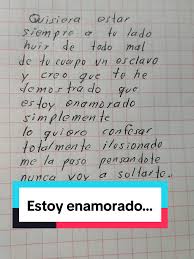 Quisiera estar
siempre a tu lado
huir de todo mal
de tu cuerpo un esclavo
y creo que te he
demostrado que
estoy enamorado
simplemente
lo quiero confesar
totalmente ilusionado
me la paso pensandote
nunca voy a soltarte..
Estoy enamorado...